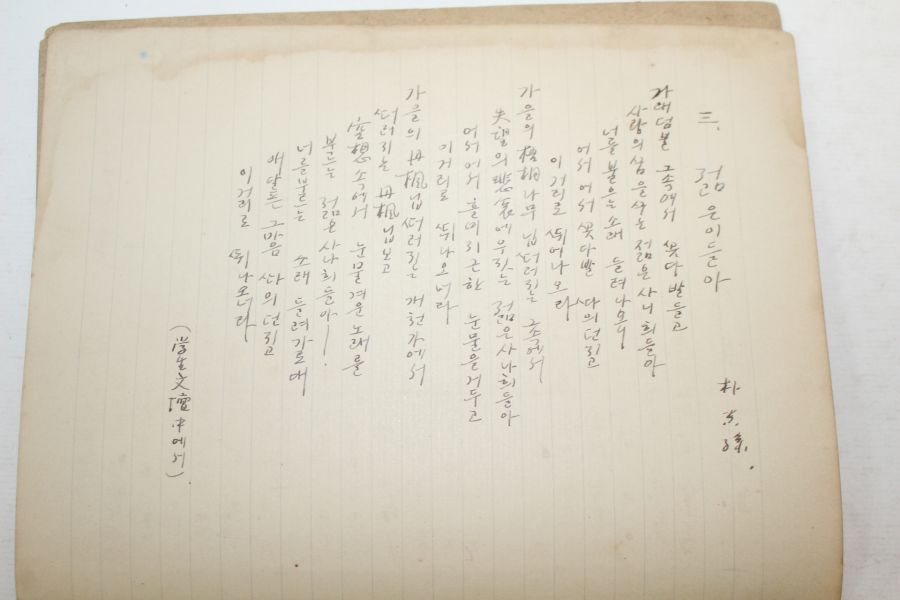 三. 젊은이들아
朴
가래덤불 그속에서 꽃당발들고
사랑의 삼을사는 젊은 사나희들아
너를 불으는 소래 들려나오니
어서 어서 꽃다발 사의 던지고
이 거리로 뛰여나오라
가을의 梧桐나무 닙떠러지는 그속에서
失望의 悲哀에우짓는 젊은사나희들아
어서어서 흘너 근한 눈물을거두고
이거리로 뛰나오너라
가을의 丹楓닙떠러지는 개천가에서
떠러지는 丹楓닙보고
空想 속에서 눈물겨운 노래를
부르는 젊은 사나희들아—
너를불으는 소래 들려가로대
애달픈 그마음 사의 던지고
이 거리로 뛰나오너라
(學生文壇中에서)